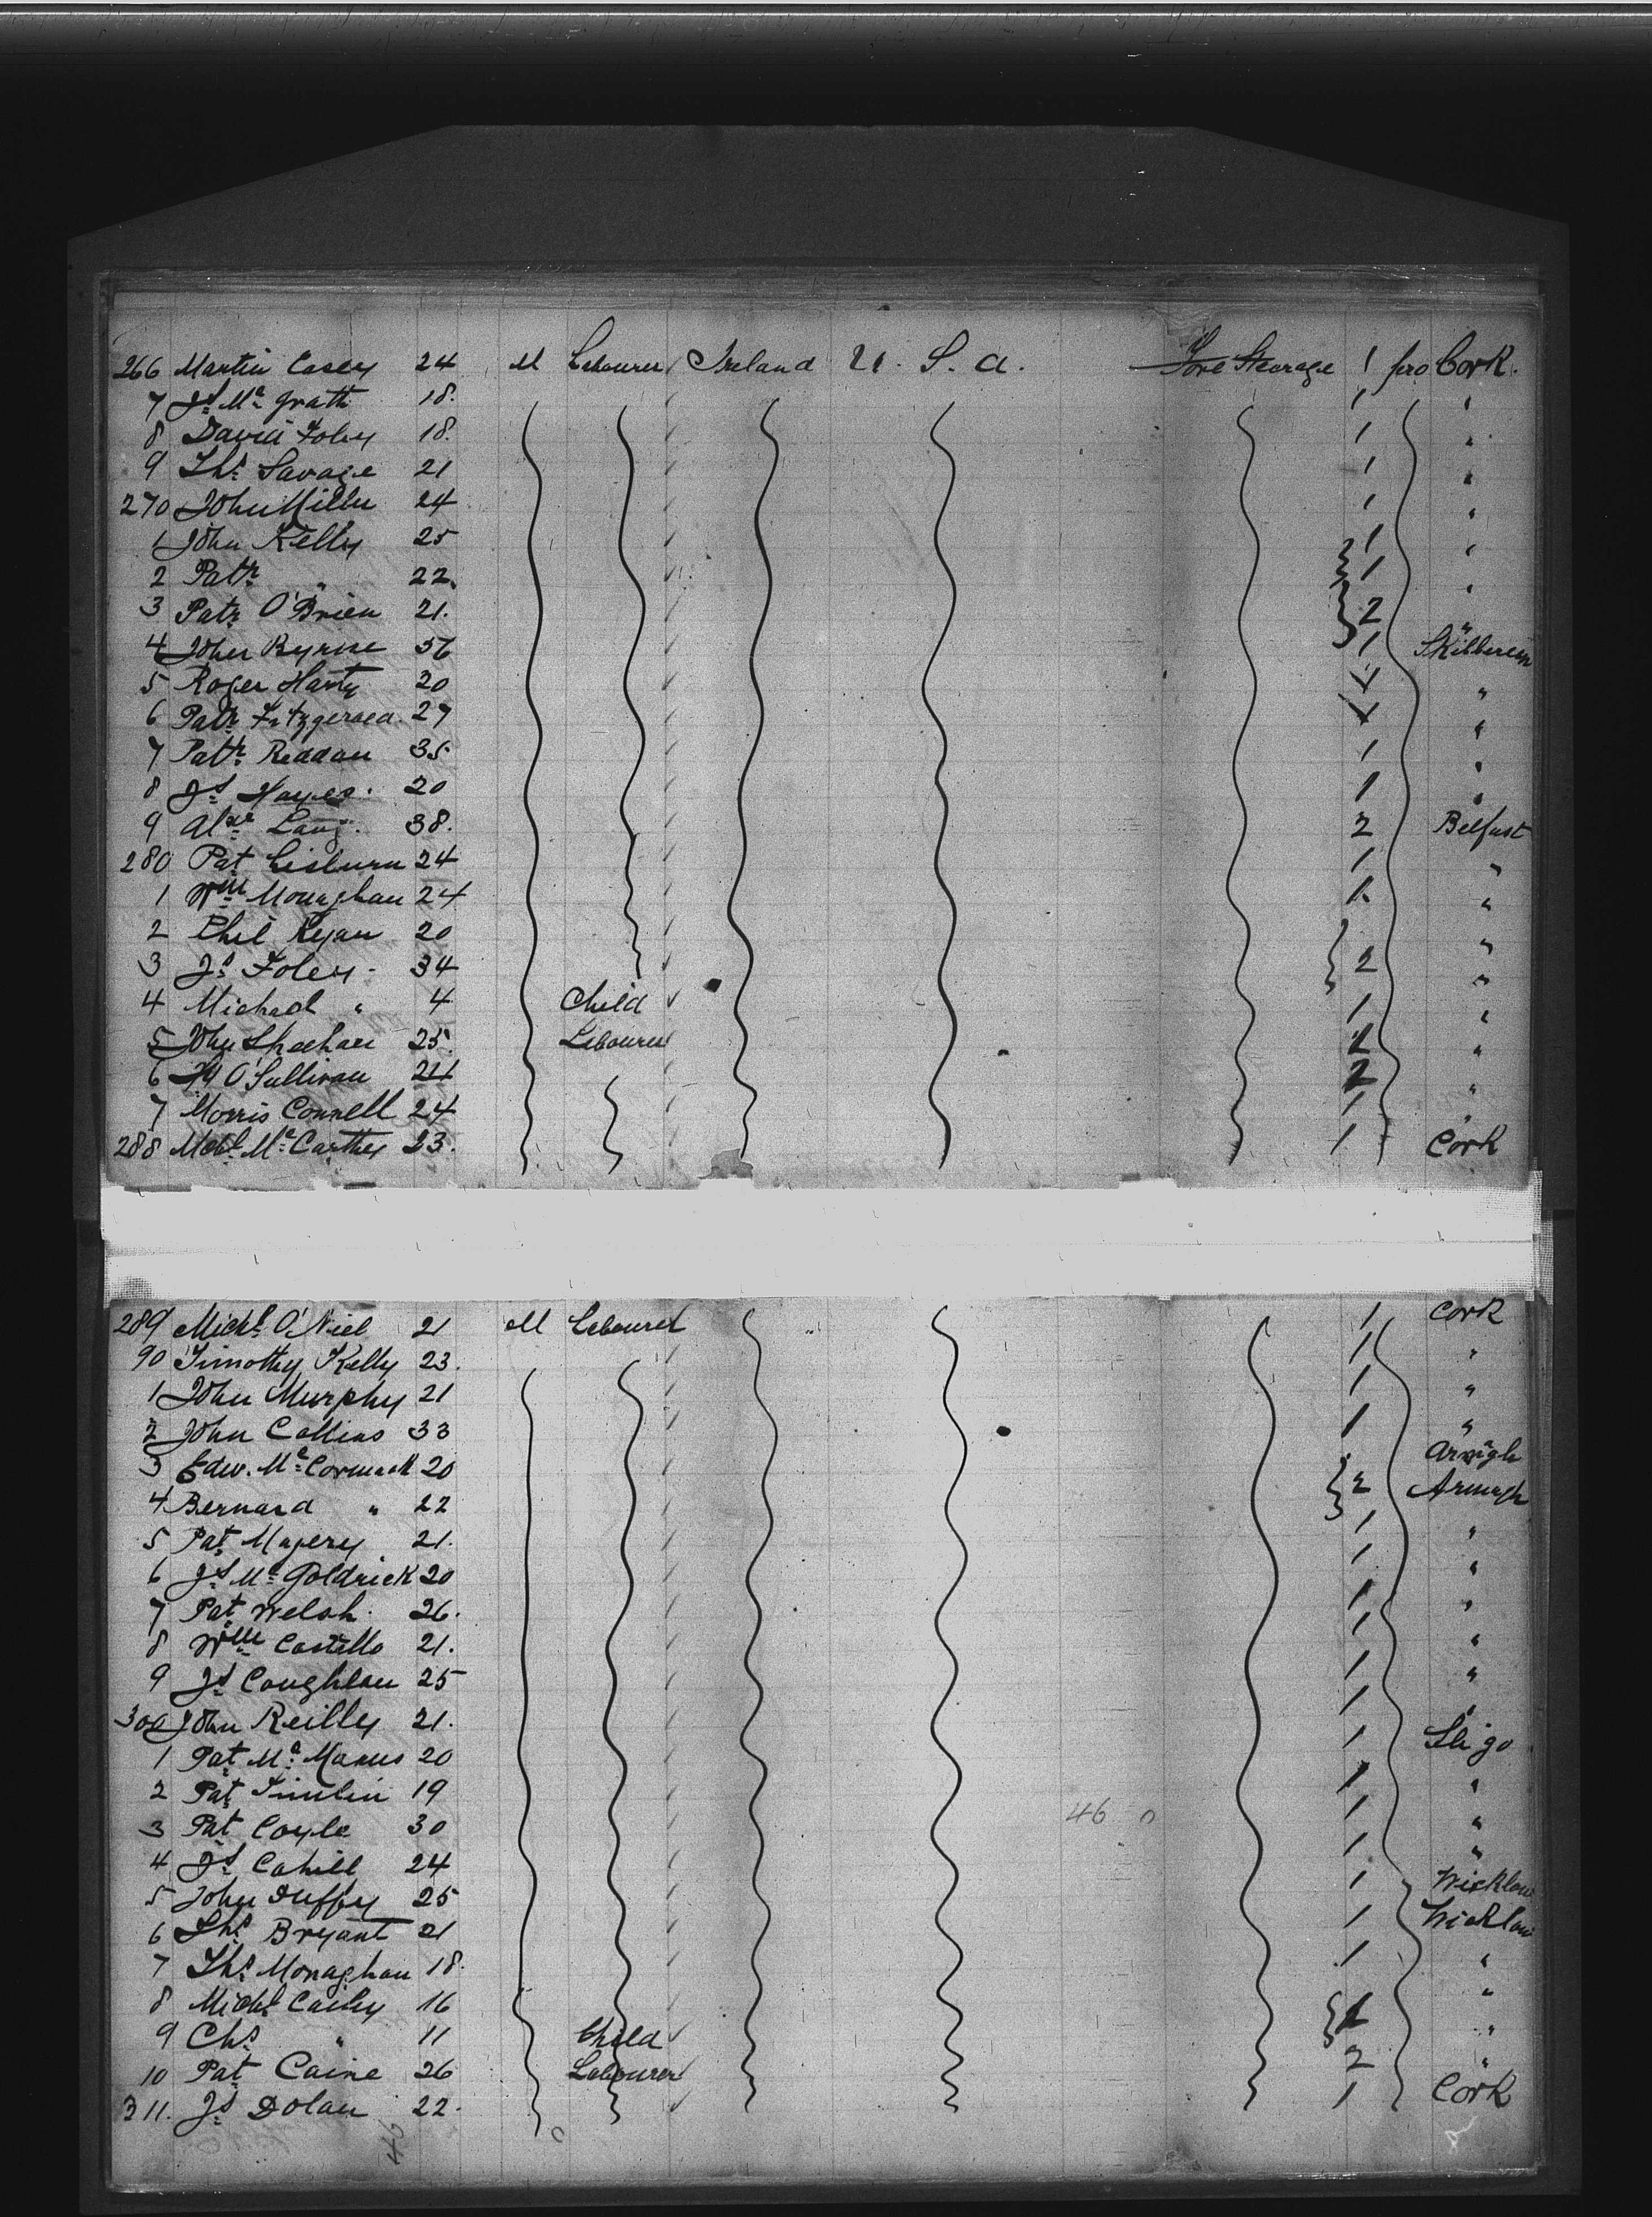 266 Martin Casey 24 M Labourer Ireland U. S. A. Fore Steerage 1 pro Cork.
7 Js Mc Grath 18. 1 "
8 David Foley 18. 1 "
9 Ths Savage 21 1 "
270 John Miller 24 1 "
1 John Kelly 25 1 "
2 Patk " 22. 1 "
3 Patk O'Brien 21. 2 "
4 John Byrne 36 1 Skibbereen
5 Roger Harty 20 1 "
6 Patk Fitzgerald. 27 1 "
7 Patk Reddan 35 1 "
8 Js Hayes. 20 1 "
9 Alxr Lang. 38. 2 Belfast
280 Pat Lisburn 24 1 "
1 Wm Monaghan 24 1 "
2 Phil Ryan 20 "
3 Js Foley - 34 2 "
4 Michael " 4 Child 1 "
5 John Sheehan 25. Labourer 1 "
6 O'Sullivan 24 2 "
7 Morris Connell 24 1 "
288 Mchl Mc Carthy 23. 1 Cork
289 Michl O'Niel 21 M Labourer 1 Cork
90 Timothy Kelly 23. 1 "
1 John Murphy 21 1 "
2 John Collins 33 1 "
3 Edw. Mc Cormack 20 Armagh
4 Bernard " 22 2 Armagh
5 Pat Magery 21. 1 "
6 Js Mc Goldrick 20 1 "
7 Pat Welsh. 26. 1 "
8 Wm Costello 21. 1 "
9 Js Coughlan 25 1 "
300 John Reilly 21. 1 "
1 Pat Mc Manus 20 1 Sligo
2 Pat Timlin 19 1 "
3 Pat Coyle 30 46 0 1 "
4 Js Cahill 24 1 "
5 John Duffy 25 1 Wicklow
6 Ths Bryant 21 1 Wicklow
7 Ths Monaghan 18. 1 "
8 Michl Casey 16 1 "
9 Chs " 11 Child "
10 Pat Caine 26 Labourer 2 "
311. Js Dolan 22. 1 Cork
46